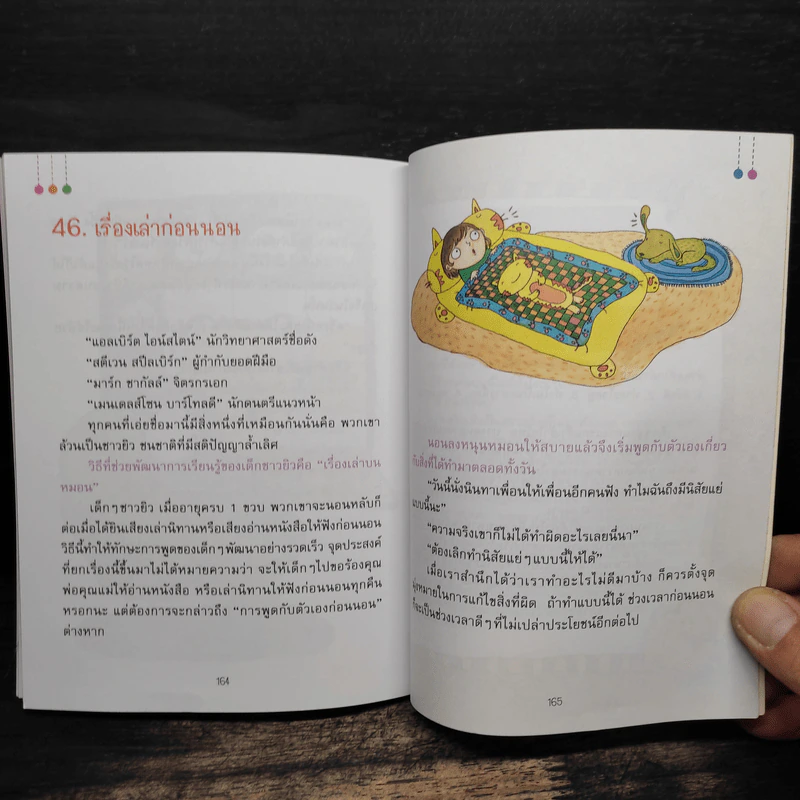 46. เรื่องเล่าก่อนนอน
“แอลเบิร์ต ไอน์สไตน์” นักวิทยาศาสตร์ชื่อดัง
“สตีเวน สปีลเบิร์ก” ผู้กำกับยอดฝีมือ
“มาร์ก ชากัลล์” จิตรกรเอก
“เมนเดลส์โซน บาร์โทลดี” นักดนตรีแนวหน้า
ทุกคนที่เอ่ยชื่อมานี้มีสิ่งหนึ่งที่เหมือนกันนั่นคือ พวกเขา
ล้วนเป็นชาวยิว ชนชาติที่มีสติปัญญาล้ำเลิศ
วิธีที่ช่วยพัฒนาการเรียนรู้ของเด็กชาวยิวคือ “เรื่องเล่าบน
หมอน”
เด็กๆชาวยิว เมื่ออายุครบ 1 ขวบ พวกเขาจะนอนหลับก็
ต่อเมื่อได้ยินเสียงเล่านิทานหรือเสียงอ่านหนังสือให้ฟังก่อนนอน
วิธีนี้ทำให้ทักษะการพูดของเด็กๆพัฒนาอย่างรวดเร็ว จุดประสงค์
ที่ยกเรื่องนี้ขึ้นมาไม่ได้หมายความว่า จะให้เด็กๆไปขอร้องคุณ
พ่อคุณแม่ให้อ่านหนังสือ หรือเล่านิทานให้ฟังก่อนนอนทุกคืน
หรอกนะ แต่ต้องการจะกล่าวถึง “การพูดกับตัวเองก่อนนอน”
ต่างหาก
164
นอนลงหนุนหมอนให้สบายแล้วจึงเริ่มพูดกับตัวเองเกี่ยว
กับสิ่งที่ได้ทำมาตลอดทั้งวัน
“วันนี้นั่งนินทาเพื่อนให้เพื่อนอีกคนฟัง ทำไมฉันถึงมีนิสัยแย่
แบบนี้นะ”
“ความจริงเขาก็ไม่ได้ทำผิดอะไรเลยนี่นา”
“ต้องเลิกทำนิสัยแย่ๆแบบนี้ให้ได้”
เมื่อเราสำนึกได้ว่าเราทำอะไรไม่ดีมาบ้าง ก็ควรตั้งจุด
มุ่งหมายในการแก้ไขสิ่งที่ผิด ถ้าทำแบบนี้ได้ ช่วงเวลาก่อนนอน
ก็จะเป็นช่วงเวลาดีๆที่ไม่เปล่าประโยชน์อีกต่อไป
165